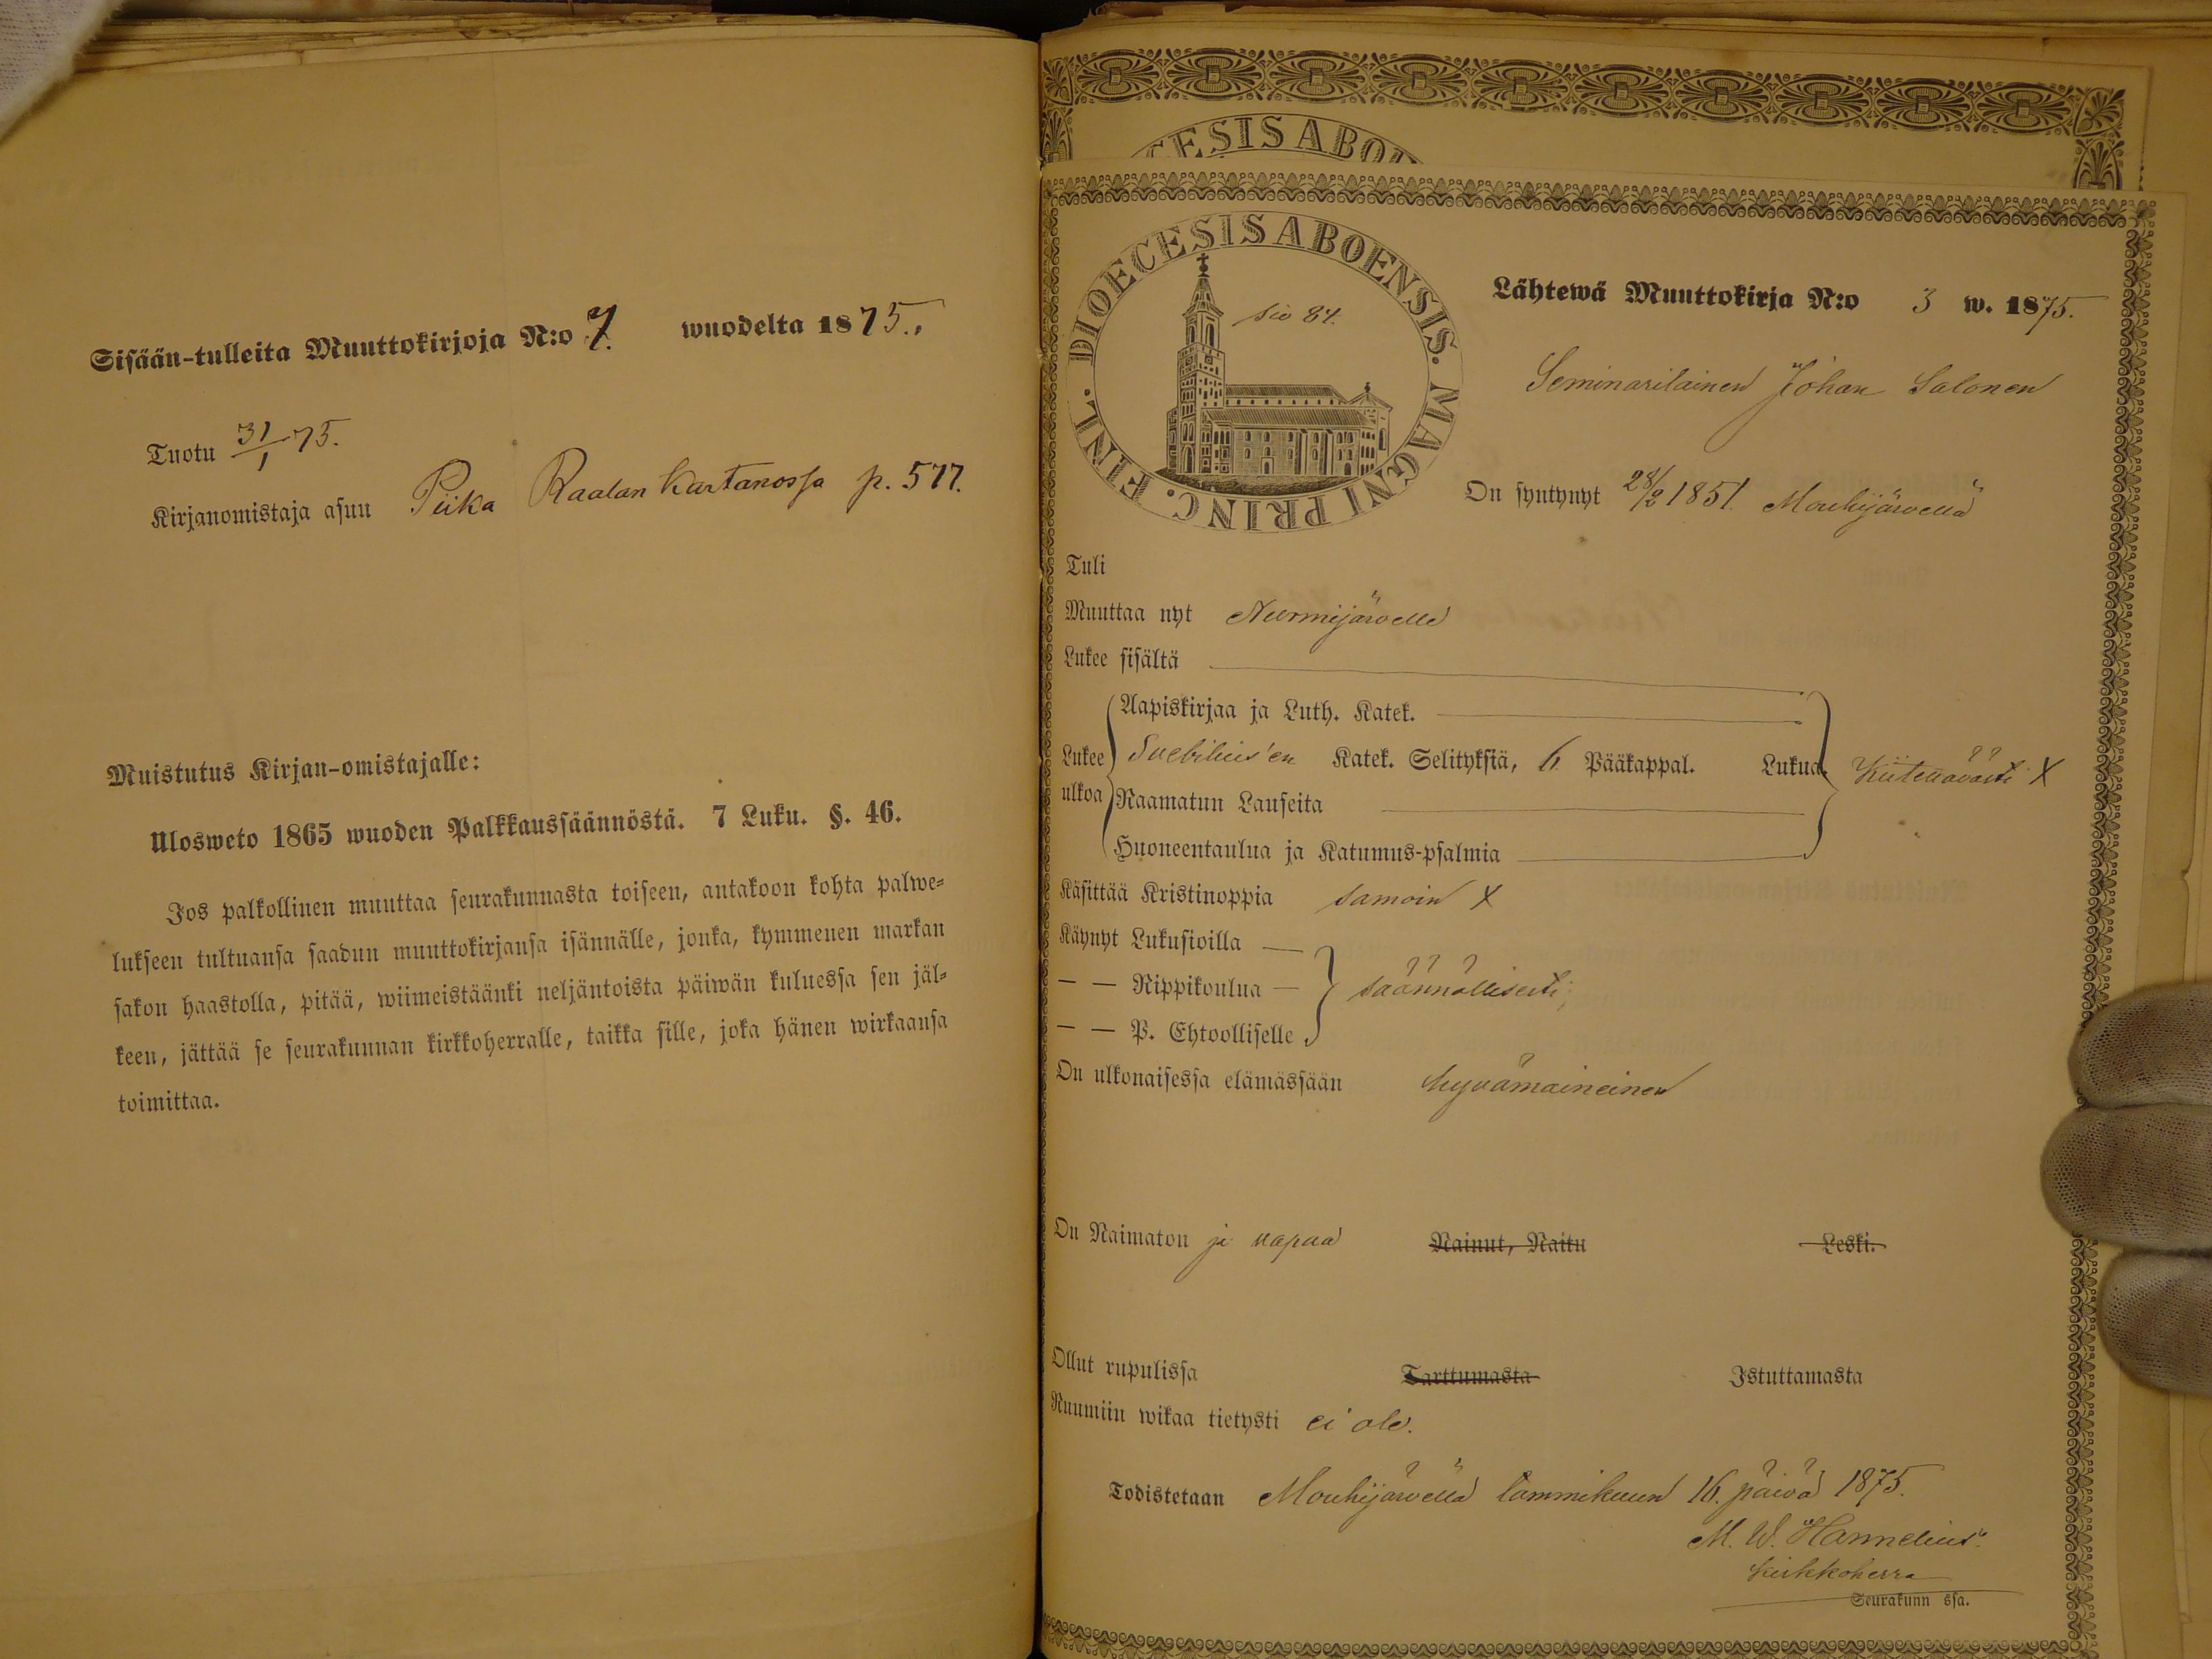 Sisään-tulleita Muuttokirjoja N:o 7. wuodelta 1875.
Tuotu 31/1 75.
Kirjanomistaja asuu Piika Raalan Kartanossa p. 577.
Muistutus Kirjan-omistajalle:
Ulosweto 1865 wuoden Palkkaussäännöstä. 7 Luku. §. 46.
Jos palkollinen muuttaa seurakunnasta toiseen, antakoon kohta palwe-
lukseen tultuansa saadun muuttokirjansa isännälle, jonka, kymmenen markan
sakon haastolla, pitää, wiimeistäänki neljäntoista päiwän kuluessa sen jäl-
keen, jättää se seurakunnan kirkkoherralle, taikka sille, joka hänen wirkaansa
toimittaa.
CESIS ABOE
DIOECESIS ABOENSIS. MAGNI PRINC. FINL.
siv 84.
Lähtewä Muuttokirja N:o 3 w. 1875.
Seminarilainen Johan Salonen
On syntynyt 28/2 1851. Mouhijärvellä
Tuli
Muuttaa nyt Nurmijärvelle
Lukee sisältä
Lukee ulkoa
Aapiskirjaa ja Luth. Katek.
Svebilius'en Katek. Selityksiä, 6 Pääkappal. Lukua. Kiitettävästi X
Raamatun Lauseita
Huoneentaulua ja Katumus-psalmia
Käsittää Kristinoppia samoin X
Käynyt Lukusioilla —
— — Rippikoulua — säännöllisesti;
— — P. Ehtoolliselle
On ulkonaisessa elämässään hyvämaineinen
On Naimaton ja vapaa Nainut, Naitu Leski.
Ollut rupulissa Tarttumasta Istuttamasta
Ruumiin wikaa tietysti ei ole.
Todistetaan Mouhijärvellä tammikuun 16. päivä 1875.
M. W. Hannelius.
Kirkkoherra
Seurakunn ssa.